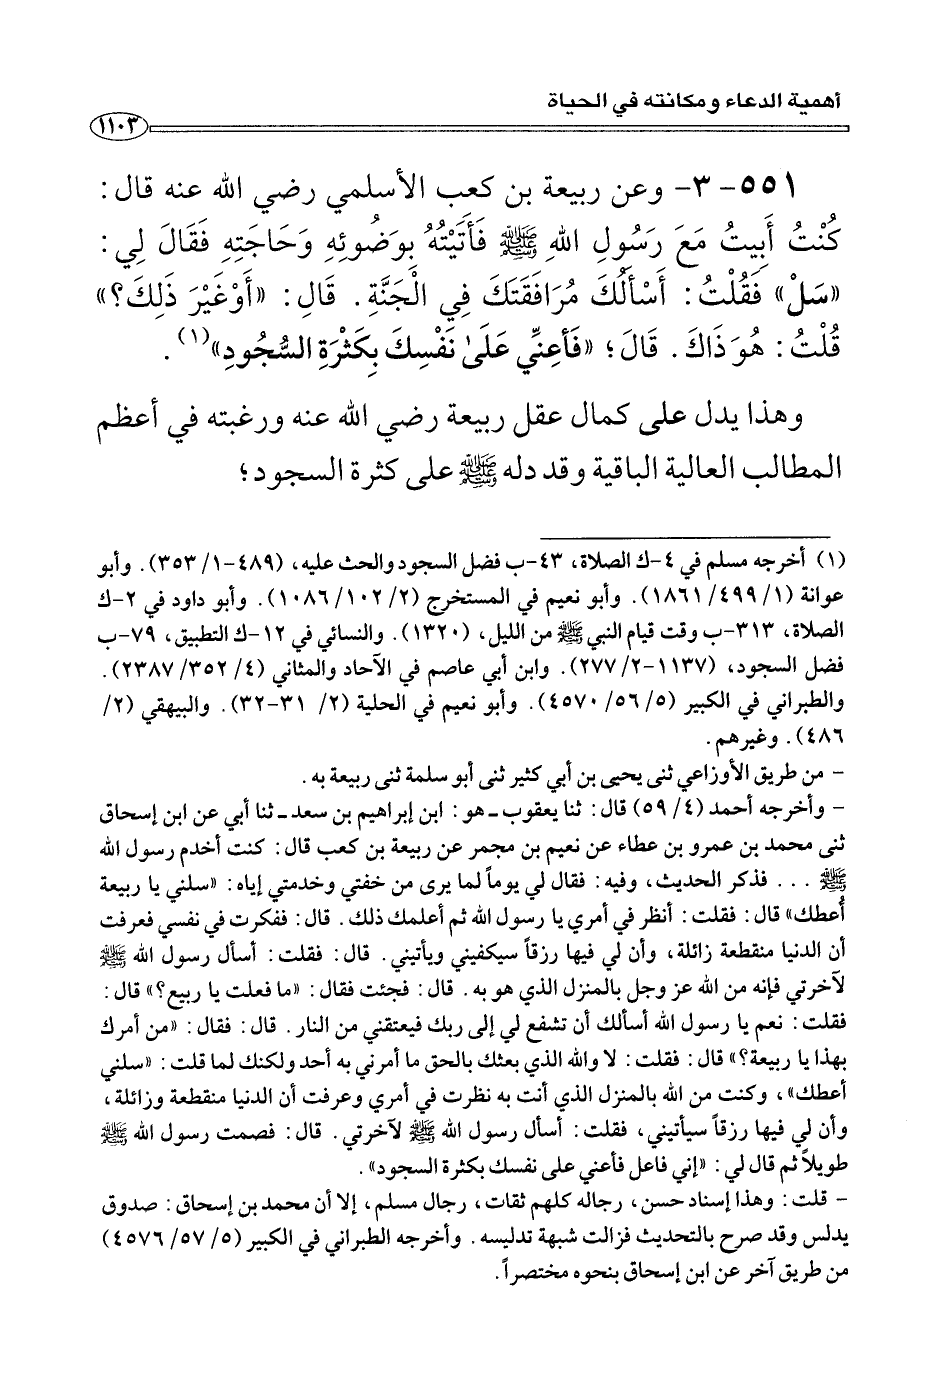 أهمية الدعاء ومكانته في الحياة
١١٠٣
٥٥١- ٣- وعن ربيعة بن كعب الأسلمي رضي الله عنه قال:
كُنْتُ أَبِيتُ مَعَ رَسُولِ اللهِ ﷺ فَأَتَيْتُهُ بِوَضُوئِهِ وَحَاجَتِهِ فَقَالَ لِي:
«سَلْ» فَقُلْتُ: أَسْأَلُكَ مُرَافَقَتَكَ فِي الْجَنَّةِ. قَالِ: «أَوْ غَيْرَ ذَلِكَ؟»
قُلْتُ: هُوَ ذَاكَ. قَالَ؛ «فَأَعِنِّي عَلَىٰ نَفْسِكَ بِكَثْرَةِ السُّجُودِ»(١).
وهذا يدل على كمال عقل ربيعة رضي الله عنه ورغبته في أعظم
المطالب العالية الباقية وقد دله ﷺ على كثرة السجود؛
(١) أخرجه مسلم في ٤-ك الصلاة، ٤٣-ب فضل السجود والحث عليه، (٤٨٩-١/ ٣٥٣). وأبو
عوانة (١/ ٤٩٩/ ١٨٦١). وأبو نعيم في المستخرج (٢/ ١٠٢/ ١٠٨٦). وأبو داود في ٢-ك
الصلاة، ٣١٣-ب وقت قيام النبي ﷺ من الليل، (١٣٢٠). والنسائي في ١٢-ك التطبيق، ٧٩-ب
فضل السجود، (١١٣٧-٢/ ٢٧٧). وابن أبي عاصم في الآحاد والمثاني (٤/ ٣٥٢/ ٢٣٨٧).
والطبراني في الكبير (٥/ ٥٦/ ٤٥٧٠). وأبو نعيم في الحلية (٢/ ٣١-٣٢). والبيهقي (٢/
٤٨٦). وغيرهم.
- من طريق الأوزاعي ثنى يحيى بن أبي كثير ثنى أبو سلمة ثنى ربيعة به.
- وأخرجه أحمد (٤/ ٥٩) قال: ثنا يعقوب ـ هو: ابن إبراهيم بن سعد ـ ثنا أبي عن ابن إسحاق
ثنى محمد بن عمرو بن عطاء عن نعيم بن مجمر عن ربيعة بن كعب قال: كنت أخدم رسول الله
ﷺ ... فذكر الحديث، وفيه: فقال لي يوماً لما يرى من خفتي وخدمتي إياه: «سلني يا ربيعة
أُعطك» قال: فقلت: أنظر في أمري يا رسول الله ثم أعلمك ذلك. قال: ففكرت في نفسي فعرفت
أن الدنيا منقطعة زائلة، وأن لي فيها رزقاً سيكفيني ويأتيني. قال: فقلت: أسأل رسول الله ﷺ
لآخرتي فإنه من الله عز وجل بالمنزل الذي هو به. قال: فجئت فقال: «ما فعلت يا ربيع؟» قال:
فقلت: نعم يا رسول الله أسألك أن تشفع لي إلى ربك فيعتقني من النار. قال: فقال: «من أمرك
بهذا يا ربيعة؟» قال: فقلت: لا والله الذي بعثك بالحق ما أمرني به أحد ولكنك لما قلت: «سلني
أعطك»، وكنت من الله بالمنزل الذي أنت به نظرت في أمري وعرفت أن الدنيا منقطعة وزائلة،
وأن لي فيها رزقاً سيأتيني، فقلت: أسأل رسول الله ﷺ لآخرتي. قال: فصمت رسول الله ﷺ
طويلاً ثم قال لي: «إني فاعل فأعني على نفسك بكثرة السجود».
- قلت: وهذا إسناد حسن، رجاله كلهم ثقات، رجال مسلم، إلا أن محمد بن إسحاق: صدوق
يدلس وقد صرح بالتحديث فزالت شبهة تدليسه. وأخرجه الطبراني في الكبير (٥/ ٥٧/ ٤٥٧٦)
من طريق آخر عن ابن إسحاق بنحوه مختصراً.